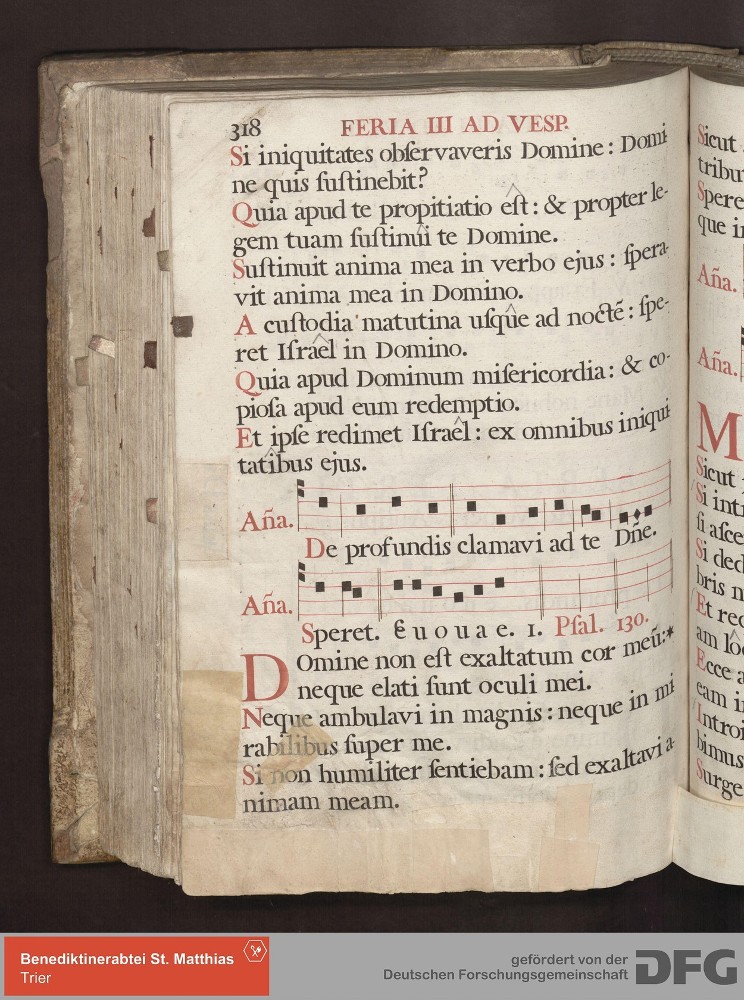 318 FERIA III AD VESP.
Si iniquitates obſervaveris Domine: Domi
ne quis ſuſtinebit?
Quia apud te propitiatio eſt: & propter le-
gem tuam ſuſtinui te Domine.
Suſtinuit anima mea in verbo ejus: ſpera-
vit anima mea in Domino.
A cuſtodia matutina uſque ad nocte᷃: ſpe-
ret Iſrael in Domino.
Quia apud Dominum miſericordia: & co-
pioſa apud eum redemptio.
Et ipſe redimet Iſrael: ex omnibus iniqui
tatibus ejus.
Aña.
De profundis clamavi ad te Dñe.
Aña.
Speret. E u o u a e. 1. Pſal. 130.
Domine non eſt exaltatum cor meũ:*
neque elati ſunt oculi mei.
Neque ambulavi in magnis: neque in mi
rabilibus ſuper me.
Si non humiliter ſentiebam: ſed exaltavi a-
nimam meam.
Sicut
tribu
Spere
que i
Aña.
Aña.
M
Sicut
Si inti
ſi aſce
Si ded
bris n
Et rec
am lo
Ecce a
eam i
Introi
bimus
Surge
Benediktinerabtei St. Matthias
Trier
gefördert von der
Deutschen Forschungsgemeinschaft
DFG